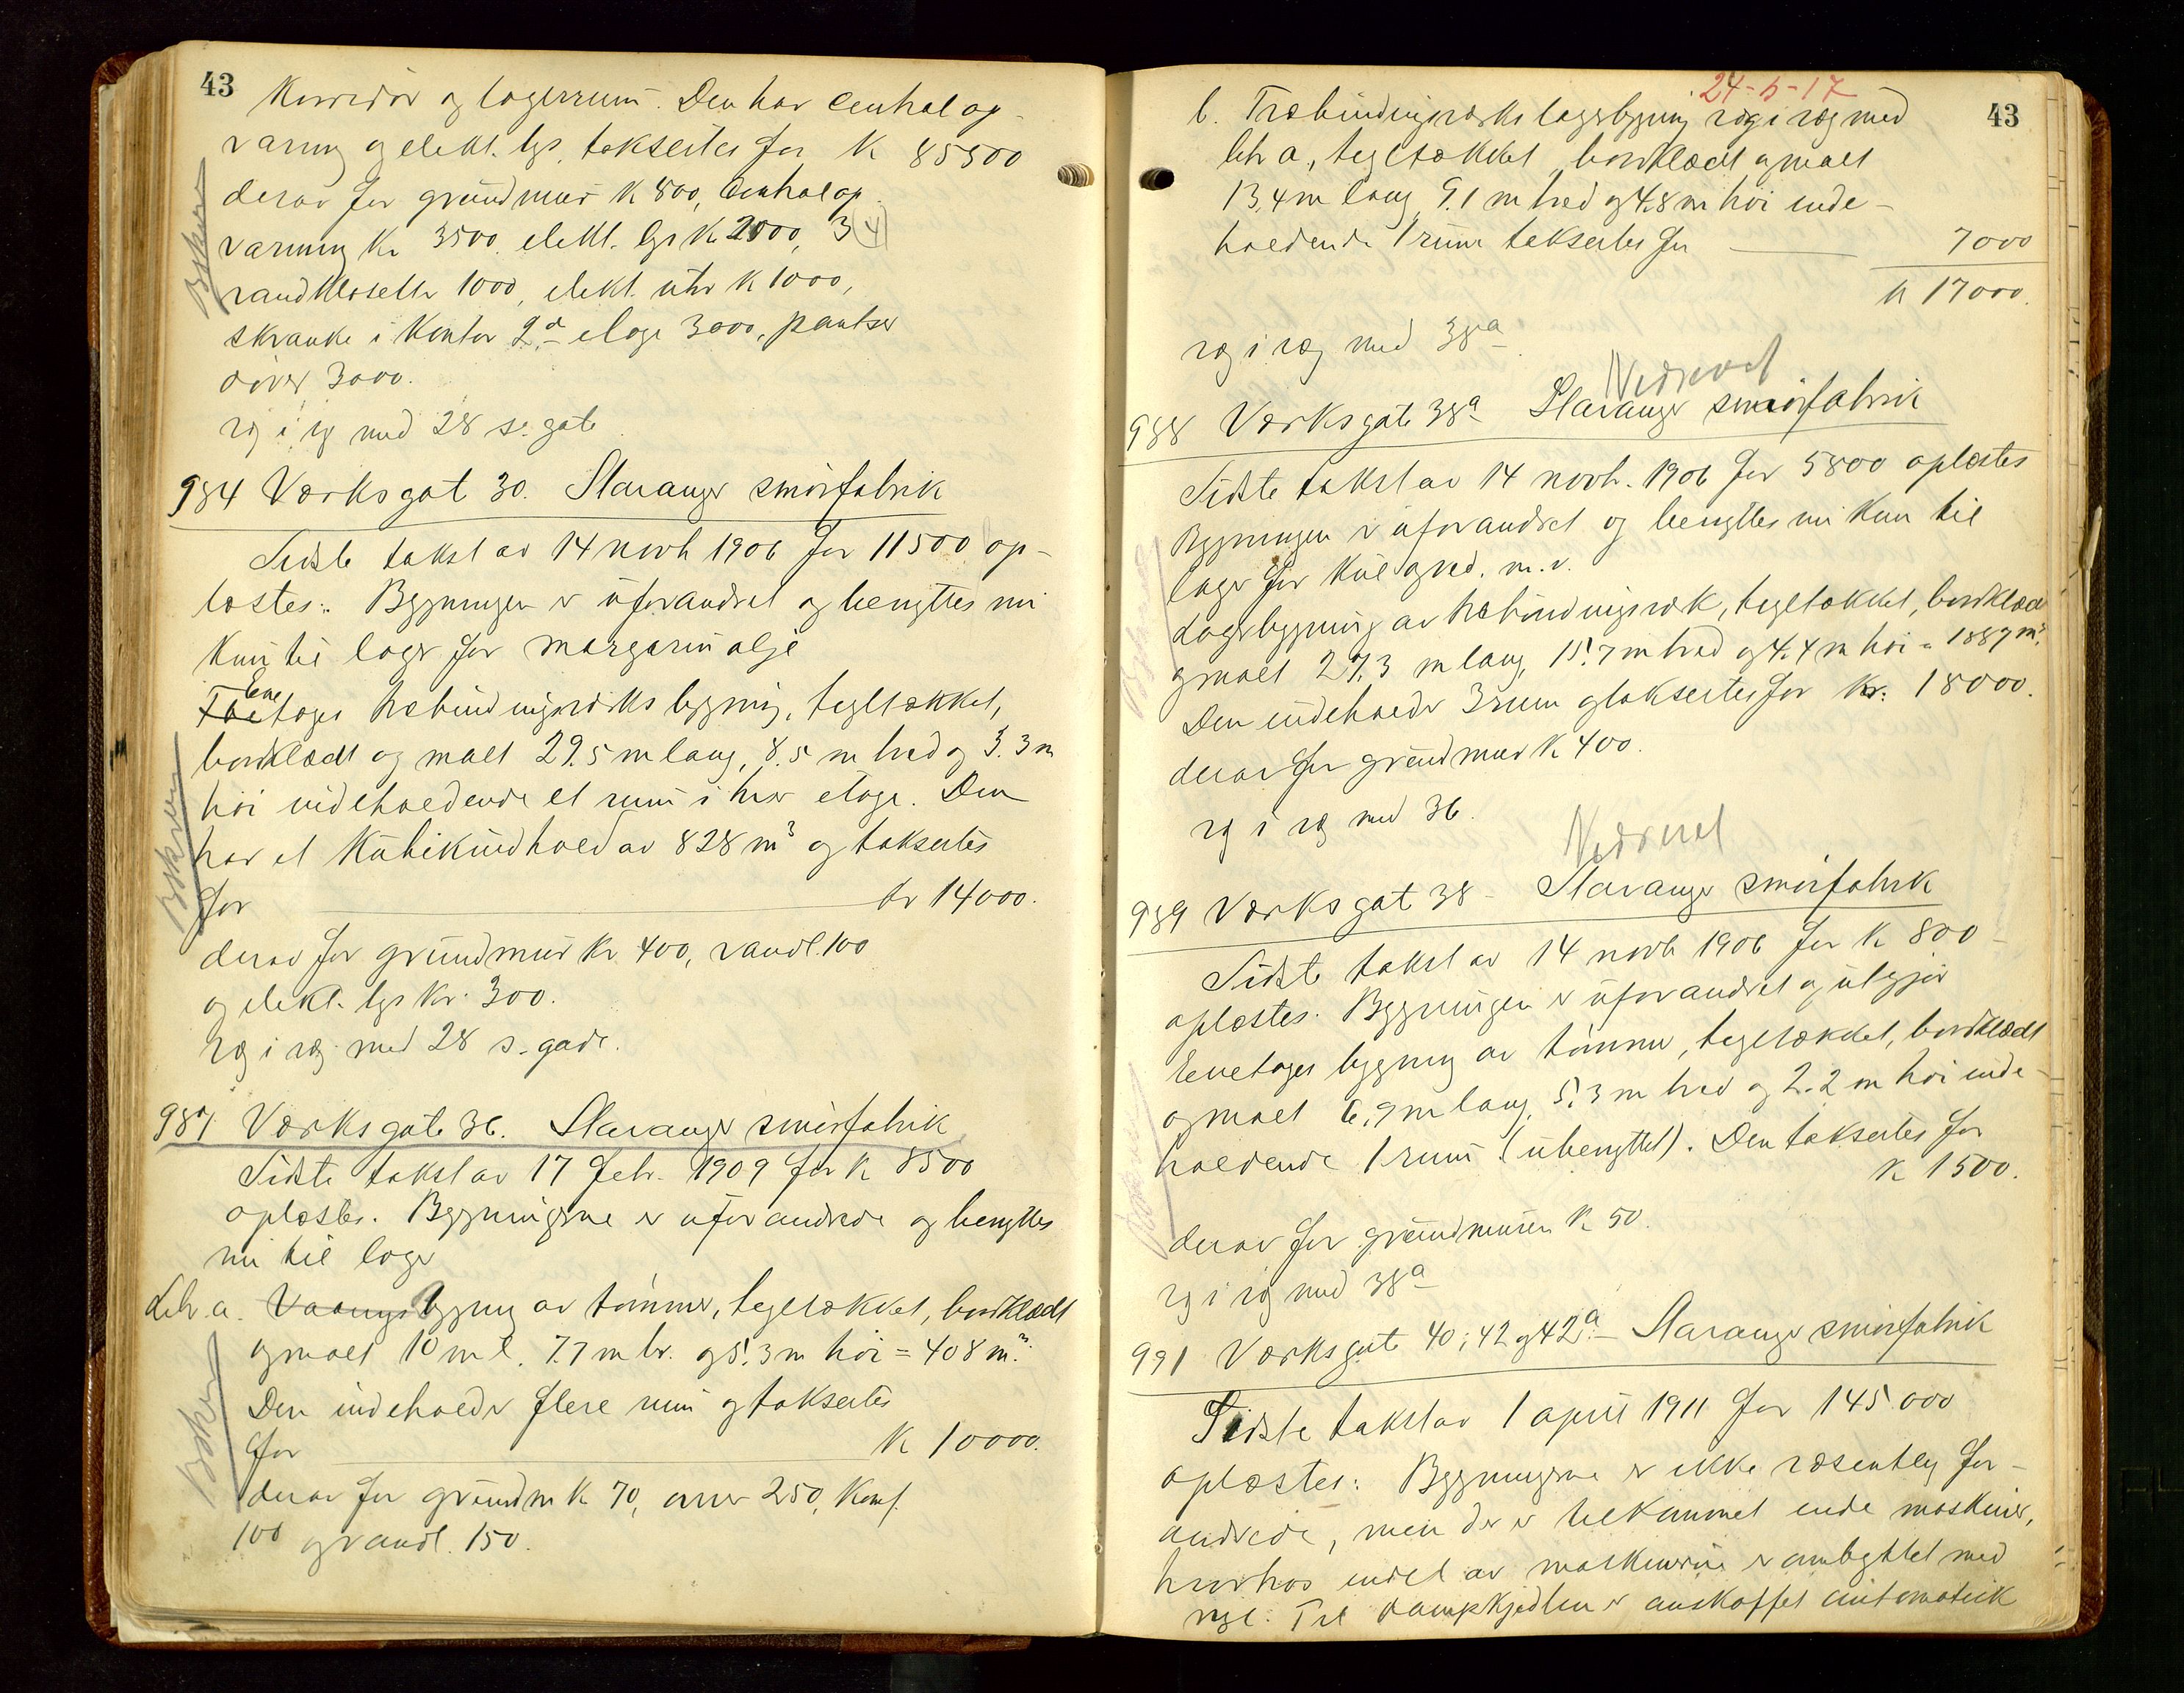 43
Korridor og lagerrum. Den har centralop-
varing og elekt. lys, taksertes for K 85500
derav for grundmur K 800, Centralop
varming Kr 3500, elekt. lys K 2500, 3 (4)
vandkloseter 1000, elekt. K 1000,
skranke i Kontor 2d etage 3000, pantser
dører 3000.
væg i væg med 28 s. gate
984 Værksgat 30. Stavanger smørfabrik
Sidste takst av 14 novb 1906 for 11500 op-
læstes. Bygningen er uforandret og benyttes nu
kun til lager for margarin olje
Eenetages træbindingsværks bygning, tegltækket,
bordklædt og malt 29.5 m lang, 8.5 m bred og 3.3 m
høi indeholdende et rum i hver etage. Den
har et Kubikindhold av 828 m³ og taksertes
for kr 14000.
derav for grundmur Kr 400, vandl. 100
og elekt. lys Kr. 300.
væg i væg med 28 s. gade.
987 Værksgate 36. Stavanger smørfabrik
Sidste takst av 17 Febr. 1909 for K 8500
oplæstes. Bygningerne er uforandrede og benyttes
nu til lager
Litr. a. Vaanings bygning av tømmer, tegltækket, bordklædt
og malt 10 m l. 7.7 m br. og 5.3 m høi = 408 m³.
Den indeholder flere rum og taksertes
for K 10000.
derav for grundm K 70, 250, Komf.
100 og vandl. 150.
Bøkeri
24-5-17
43
b. Træbindingsværks lagerbygning væg i væg med
litr a, tegltækket, bordklædt og malt
13,4 m lang, 9.1 m bred og 4.8 m høi inde-
holdende 1 rum taksertes for 7000
K 17000.
væg i væg med 38a
Nedrevet
988 Værksgate 38a Stavanger smørfabrik
Sidste takst av 14 novb. 1906 for 5800 oplæstes
Bygningen er uforandret og benyttes nu kun til
lager for Kul og ved. m.v.
Lagerbygning av træbindingsværk, tegltækket, bordklædt
og malt 27.3 m lang, 15.7 m bred og 4.4 m høi = 1887 m³.
Den indeholder 3 rum og taksertes for Kr. 18000.
derav for grundmur K 400.
væg i væg med 36.
Nedrevet
989 Værksgat 38 - Stavanger smørfabrik
Sidste takst av 14 novb 1906 for K 800-
oplæstes. Bygningen er uforandret og utgjør
Eenetages bygning av tømmer, tegltækket, bordklædt
og malt 6,9 m lang, 5.3 m bred og 2.2 m høi inde-
holdende 1 rum (ubenyttet). Den taksertes for
K 1500.
derav for grundmuren K 50.
væg i væg med 38a
991 Værksgate 40, 42 og 42a - Stavanger smørfabrik
Sidste takst av 1 april 1911 for 145000
oplæstes: Bygningerne er ikke væsentlig for-
andrede, men der er tilkommet ende maskiner,
hvorhos endel av maskinerne er ombyttet med
nye. Til dampkjedlen er anskaffet automatisk